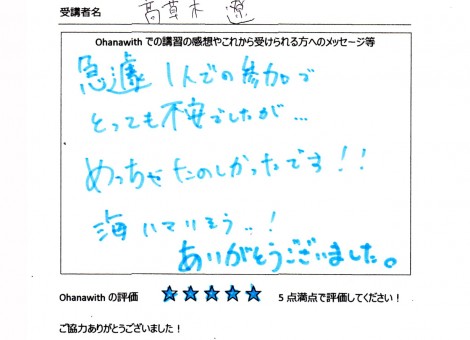 受講者名 高草木 遼
Ohanawith での講習の感想やこれから受けられる方へのメッセージ等
急遽 1人での参加で
とっても不安でしたが…
めっちゃたのしかったです!!
海ハマりそう..!
ありがとうございました。
Ohanawith の評価 ★★★★★ 5点満点で評価してください!
ご協力ありがとうございました!